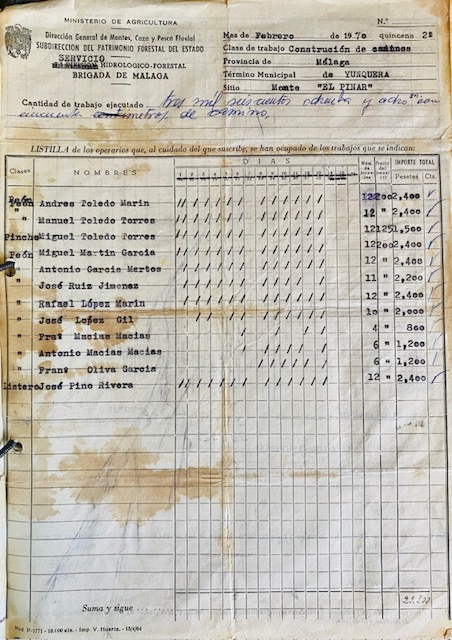 MINISTERIO DE AGRICULTURA
Dirección General de Montes, Caza y Pesca Fluvial
SUBDIRECCION DEL PATRIMONIO FORESTAL DEL ESTADO
SERVICIO
HIDROLOGICO-FORESTAL
BRIGADA DE MALAGA
N.º
Mes de Febrero de 1970 quincena 2ª
Clase de trabajo Construción de caminos
Provincia de Málaga
Término Municipal de YUNQUERA
Sitio Monte "EL PINAR"
Cantidad de trabajo ejecutado tres mil seiscientos ochenta y ocho m con
cincuenta centimetros de camino.
LISTILLA de los operarios que, al cuidado del que suscribe, se han ocupado de los trabajos que se indican:
Clases NOMBRES DIAS IMPORTE TOTAL
Pesetas Cts.
Peón Andres Toledo Marin 12 200 2,400
" Manuel Toledo Torres 12 " 2,400
Pinche Miguel Toledo Torres 12 125 1,500
Peón Miguel Martin Garcia 12 200 2,400
" Antonio Garcia Mertos 12 " 2,400
" José Ruiz Jimenez 11 " 2,200
" Rafael López Marin 12 " 2,400
" José Lopez Gil 10 " 2,000
" Franº Macias Macias 4 " 800
" Antonio Macias Macias 6 " 1,200
" Franº Oliva Garcia 6 " 1,200
Listero José Pino Rivera 12 " 2,400
Suma y sigue
Mod. P-1771 - 10.000 ejs. - Imp. V. Huerta. - 13/4/64